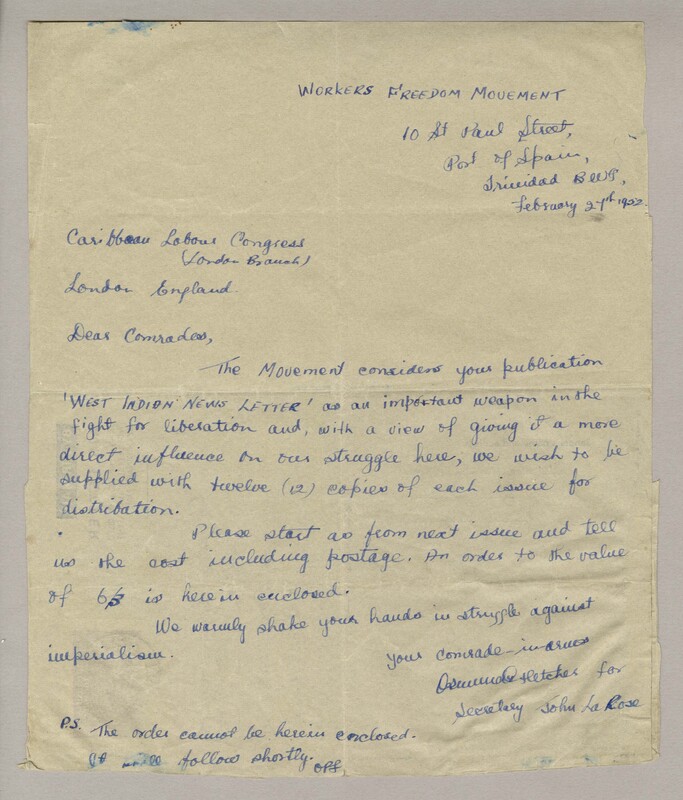 WORKERS FREEDOM MOVEMENT
10 St Paul Street,
Port of Spain,
Trinidad B.W.I.,
February 27th 1952.
Caribbean Labour Congress
(London Branch)
London England
Dear Comrades,
The Movement considers your publication
'WEST INDIAN NEWS LETTER' as an important weapon in the
fight for liberation and, with a view of giving it a more
direct influence on our struggle here, we wish to be
supplied with twelve (12) copies of each issue for
distribution.
Please start as from next issue and tell
us the cost including postage. An order to the value
of 6/3 is herein enclosed.
We warmly shake your hands in struggle against
imperialism.
your comrade-in-arms
Fletcher for
Secretary John La Rose
P.S. The order cannot be herein enclosed.
It will follow shortly.